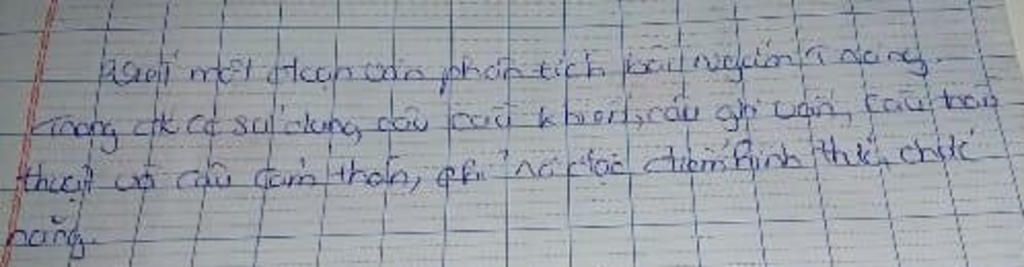 một đoạn văn phân tích bài nghìn
trong đk có sử dụng câu cầu khiến, câu ghi vấn, câu trần
thuật và câu cảm thán, chỉ đặc điểm hình thức, chức
năng.